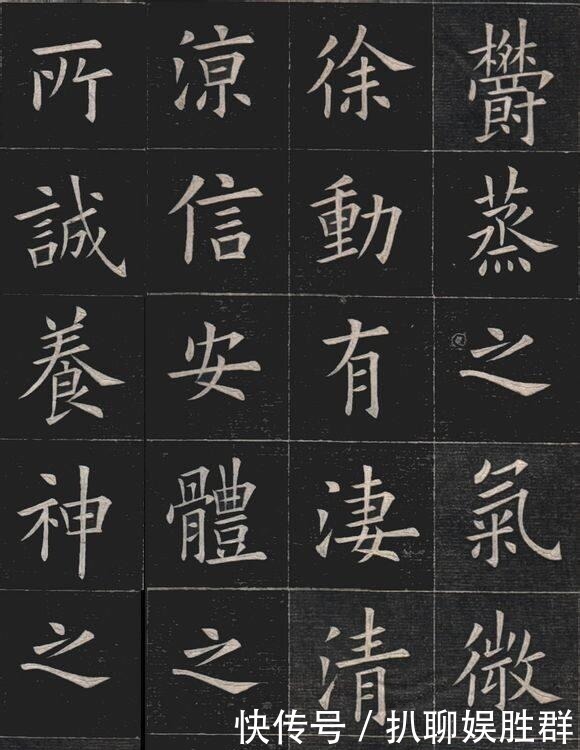 欝蒸之氣微
徐動有淒清
涼信安體之
所誠養神之
快传号 / 扒聊娱胜群